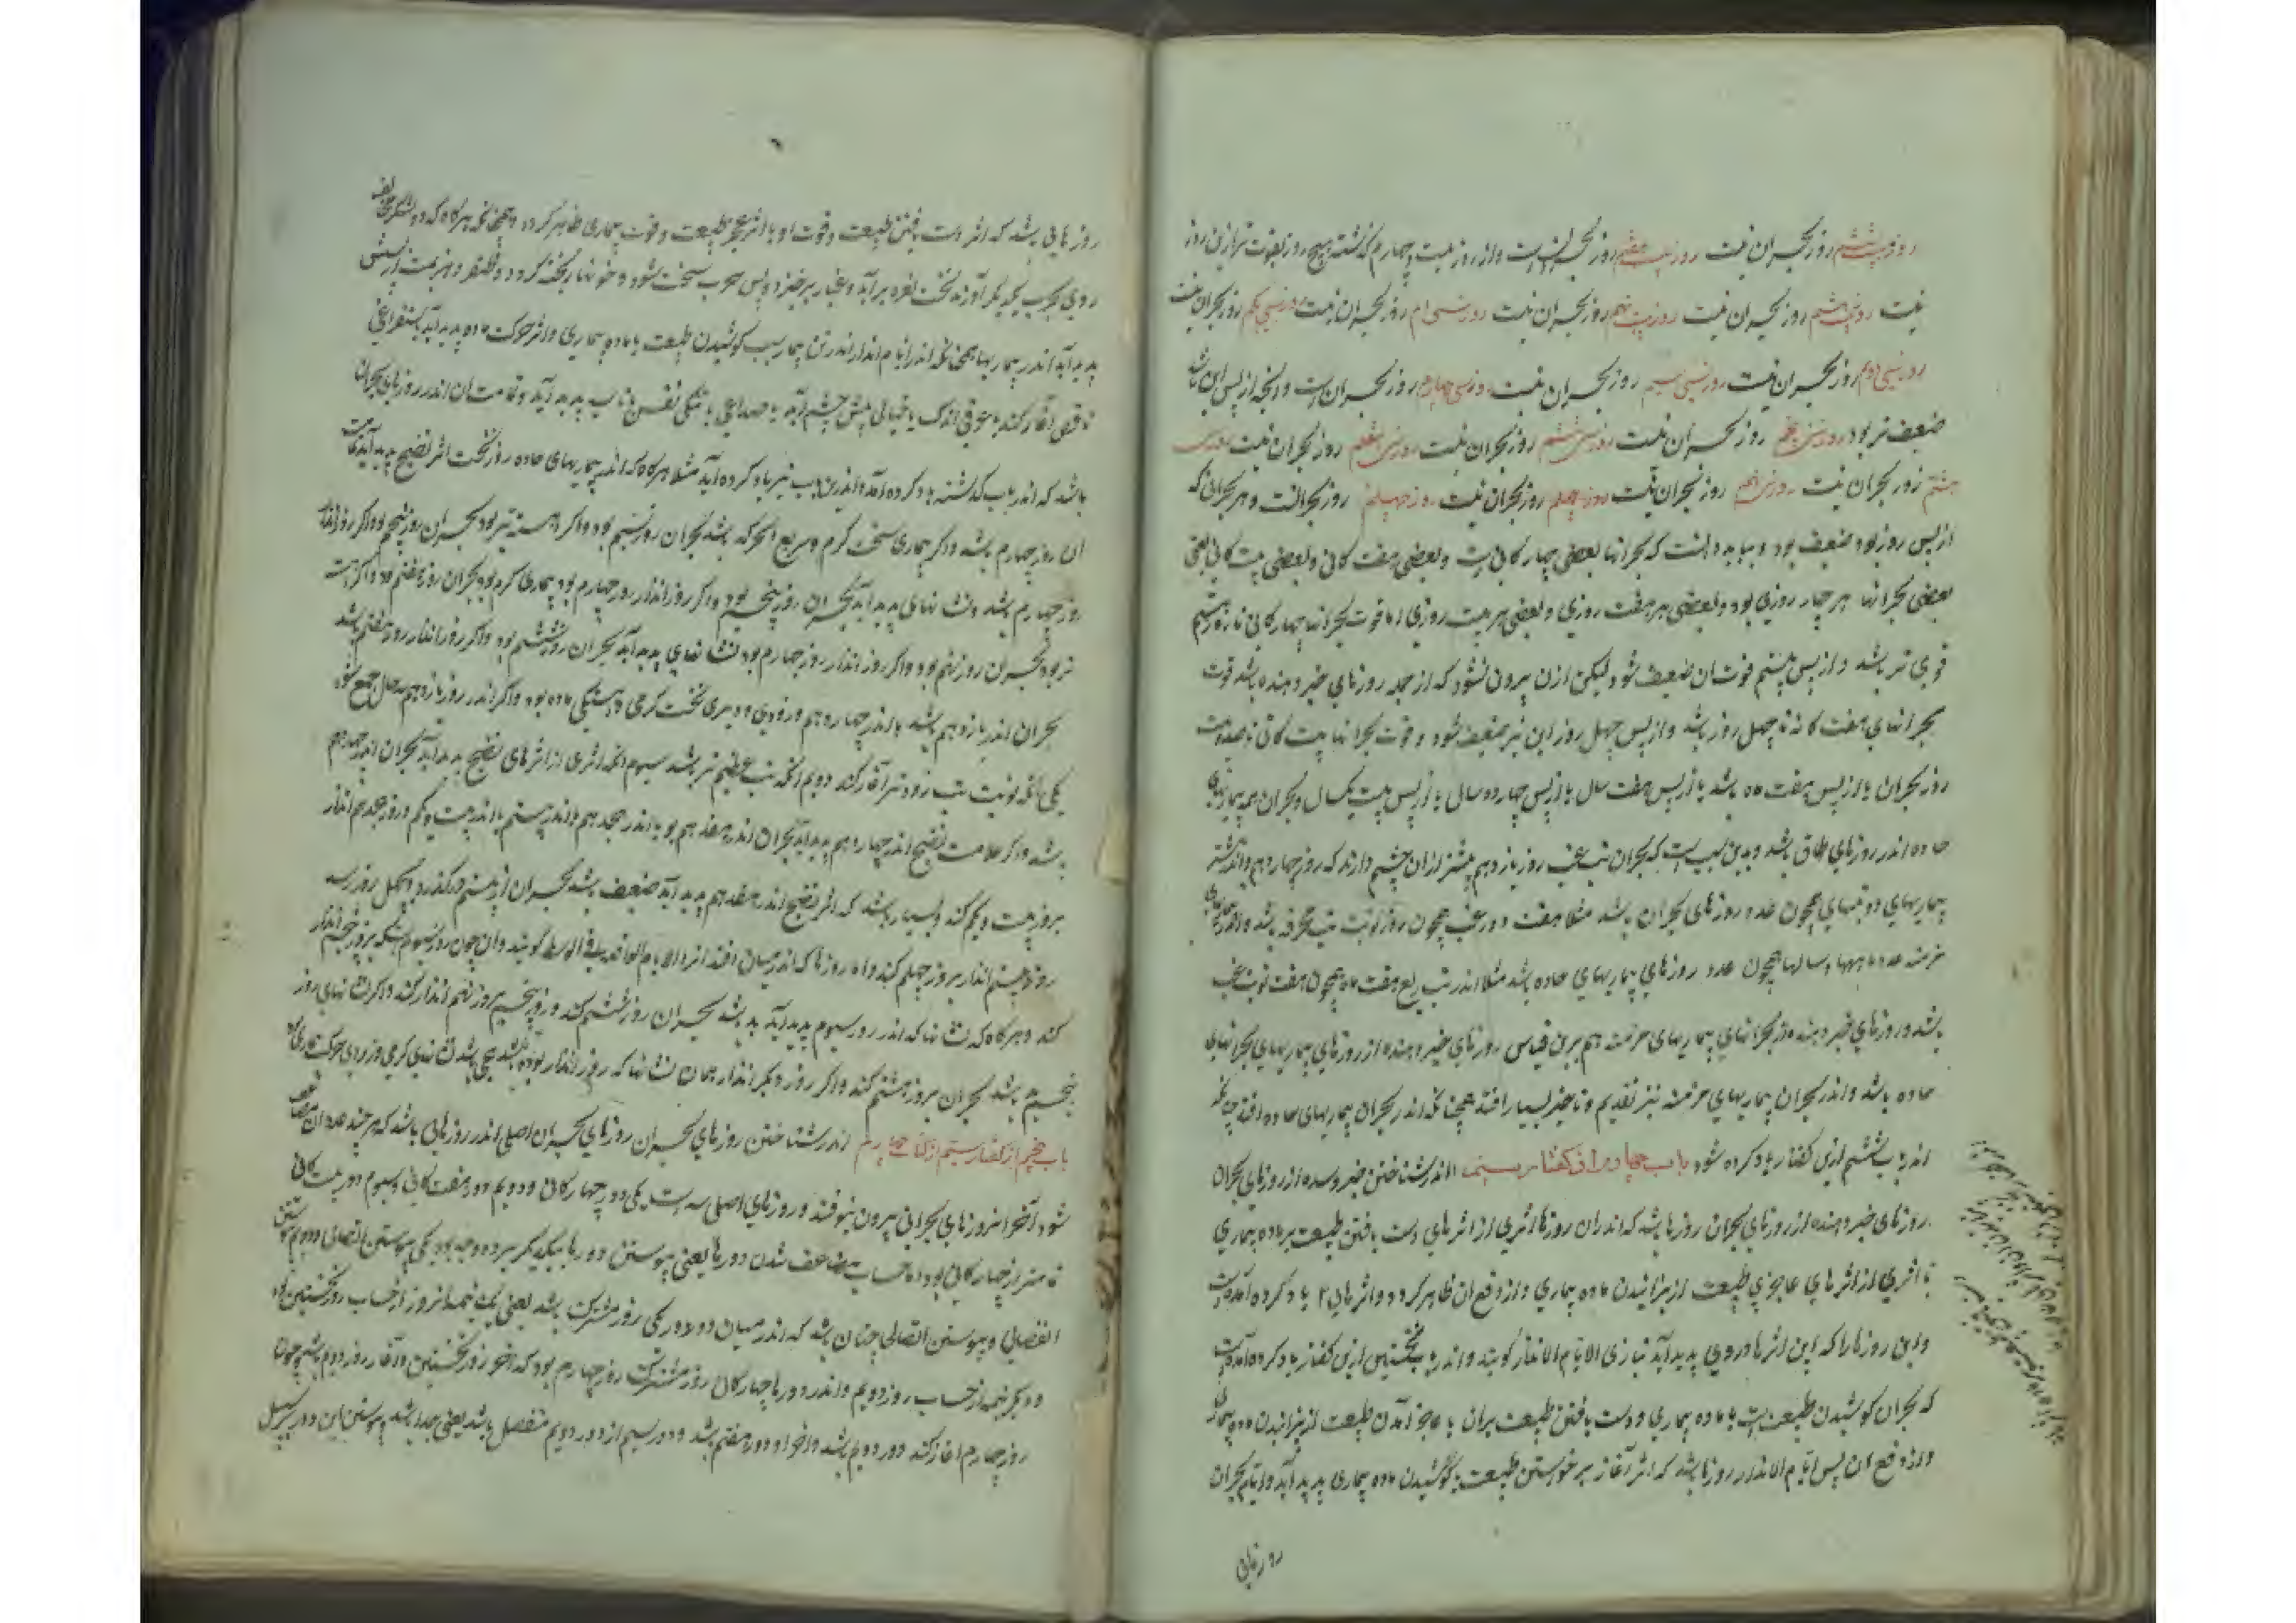 روز بیست ششم روز بحران نیست روز بیست هفتم روز بحرانست و از روز بیست و چهارم گذشته هیچ روز بقوت تر ازین روز
نیست روز بیست هشتم روز بحران نیست روز بیست نهم روز بحران نیست روز سی ام روز بحران نیست روز سی یکم روز بحران نیست
روز سی دوم روز بحران نیست روز سی سیم روز بحران نیست روز سی چهارم روز بحرانست و آنچه از پس این باشد
ضعیف تر بود روز سی پنجم روز بحران نیست روز سی ششم روز بحران نیست روز سی هفتم روز بحران نیست روز سی
هشتم روز بحران نیست روز سی نهم روز بحران نیست روز چهلم روز بحرانست و هر بحرانی که
از پس روز بود ضعیف بود و بباید دانست که بحرانها بعضی چهارکانی است و بعضی هفت کانی و بعضی بیست کانی یعنی
بعضی بحرانها هر چهار روزی بود و بعضی هر هفت روزی و بعضی هر بیست روزی اما قوت بحرانها چهارکانی تا روز بیستم
قوی تر باشد و از پس بیستم قوت آن ضعیف شود لیکن ازن بیرون نشود که از جمله روزهای خبر دهنده باشد قوت
بحرانهای هفت کانه تا چهل روز باشد و از پس چهل روز این نیز ضعیف شود و قوت بحرانها بیست کانی تا صد و بیست
روز بحران یا از پس هفت ماه باشد یا از پس هفت سال یا از پس چهارده سال یا از پس بیست یکسال و بحران همه بیماریهای
حاده اندر روزهای طاق باشد و بدین سبب است که بحران تب غب روز یازدهم بیشتر ازان چشم دارند که روز چهاردهم و اندر شمار
بیماریهای نوبتهای همچون عدد روزهای بحران باشد مثلا هفت دور غب همچون روز نوبت تب محرقه باشد و اندر بیماریهای
مزمنه عدد ماهها و سالها همچون عدد روزهای بیماریهای حاده باشد مثلا اندر تب ربع هفت ماه همچون هفت نوبت غب
باشد و روزهای خبر دهنده از بحرانهای بیماریهای مزمنه هم برین قیاس روزهای خبر دهنده از روزهای بیماریهای بحرانهای
حاده باشد و اندر بحران بیماریهای مزمنه نیز تقدیم و تاخیر بسیار افتد همچنانکه اندر بحران بیماریهای حاده افتد چنانکه
اندر باب ششم ازین کفتار یاد کرده شود باب چهارم از کفتار سیم اندر شناختن خبر دهنده از روزهای بحران
روزهای خبر دهنده از روزهای بحران روزها باشد که اندران روزها اثری از اثرهای دست یافتن طبیعت بر ماده بیماری
یا اثری از اثرهای عاجزی طبیعت از پزانیدن ماده بیماری و از دفع آن ظاهر کردد و اثرهای یاد کرده آمده است
و این روزها را که این اثرها در وی پدید آید بتازی الایام الانذار کویند و اندر باب نخستین ازین کفتار یاد کرده آمده است
که بحران کوشیدن طبیعت است با ماده بیماری و دست یافتن طبیعت بران یا عاجز آمدن طبیعت از پزانیدن ماده بیماری
و از دفع آن پس ایام الانذار روزها باشد که اثر آغاز برخواستن طبیعت بکوشیدن ماده بیماری پدید آید و ایام بحران
روزهایی
روزهایی باشد که اثر دست یافتن طبیعت و قوت او یا اثر عجز طبیعت و قوت بیماری ظاهر کردد و همچنانکه هرکاه که دو لشکر مخالف
روی بحرب یکدیکر آورند نخست نعره برآید و غبار برخیزد و پس حرب سخت شود و خونها ریخته کردد و ظفر و هزیمت از پسش
پدید آید اندر بیماریها همچنانکه اندر ایام انذار اندر تن بیمار سبب کوشیدن طبیعت با ماده بیماری و اثر حرکت ماده پدید آید استفراغی
ناقص آغاز کند یا عرقی اندک یا خیالی پیش چشم آید یا صداعی یا تنکی نفس یا تاسه پدید آید و تمامت آن اندر روزهای بحران
باشد که اندر باب کذشته یاد کرده آمد و اندرین باب نیز یاد کرده آید مثلا هرکاه که اندر بیماریهای حاده روز نخست اثر نضج پدید آید
آن روز چهارم باشد و اکر بیماری سخت کرم و سریع الحرکه باشد بحران روز سیم بود و اکر آهسته تر بود بحران روز پنجم بود و اکر روز انذار
روز چهارم باشد و نشانهای بد پدید آید بحران روز پنجم بود و اکر روز انذار روز چهارم بود بیماری کرم بود بحران روز هفتم بود و اکر آهسته
تر بود بحران روز نهم بود و اکر روز انذار روز چهارم بود نشانهای بد پدید آید بحران روز ششم بود و اکر روز انذار روز هفتم باشد
بحران اندر یازدهم باشد یا اندر چهاردهم و زودی و دیری سخت کرمی و آهستکی ماده بود و اکر اندر روز یازدهم سه حال جمع شود
یکی آنکه نوبت تب زودتر آغاز کند دویم آنکه تب عظیم تر باشد سیوم آنکه اثری از اثرهای نضج پدید آید بحران اندر چهاردهم
باشد و اکر علامت نضج اندر چهاردهم پدید آید بحران اندر هفدهم بود یا اندر هجدهم یا اندر بیستم یا اندر بیست و یکم و روز هجدهم انذار
بروز بیست و یکم کند و بسیار باشد که اثر نضج اندر هفدهم پدید آید ضعیف باشد بحران از بیستم درکذرد و بچهل روز رسد
روز بیستم انذار بروز چهلم کند و آن روزها که اندر میان افتد انرا الایام الواقعه فی الوسط کویند و آن چون روز سیوم است که بروز پنجم انذار
کند و هرکاه که نشانها که اندر روز سیوم پدید آید بد باشد بحران روز ششم کند و روز پنجم بروز نهم انذار کند و اکر نشانهای روز
پنجم بد باشد بحران بروز هشتم کند و اکر روز دیکر انذار همان نشانها که روز انذار بوده باشد همی باشد نشانهای کرمی و زودی حرکت بیماری
باب پنجم از کفتار سیم از کتاب چهارم اندر شناختن روزهای بحران روزهای بحران اصلی اندر روزهایی باشد که هر چند عدد آن مضاعف
شود آخر از روزهای بحرانی بیرون نیوفتد و روزهای اصلی سه است یکی دور چهارکانی و دویم دور هفت کانی و سیوم دور بیست کانی
انفصالی و پیوستن اتصالی چنان باشد که اندر میان دو دور یکی روز مشترک باشد یعنی یک نیمه از روز از حساب روز نخستین بود
و دیکر نیمه از حساب روز دویم و اندر دورها چهارکان روز مشترک روز چهارم بود که آخر روز نخستین و آغاز روز دویم باشد و چون از
روز چهارم آغاز کند دور دویم باشد و آخر او روز هفتم باشد و دور سیم از دور دویم منفصل باشد یعنی جدا باشد و پیوستن این دور بر سبیل